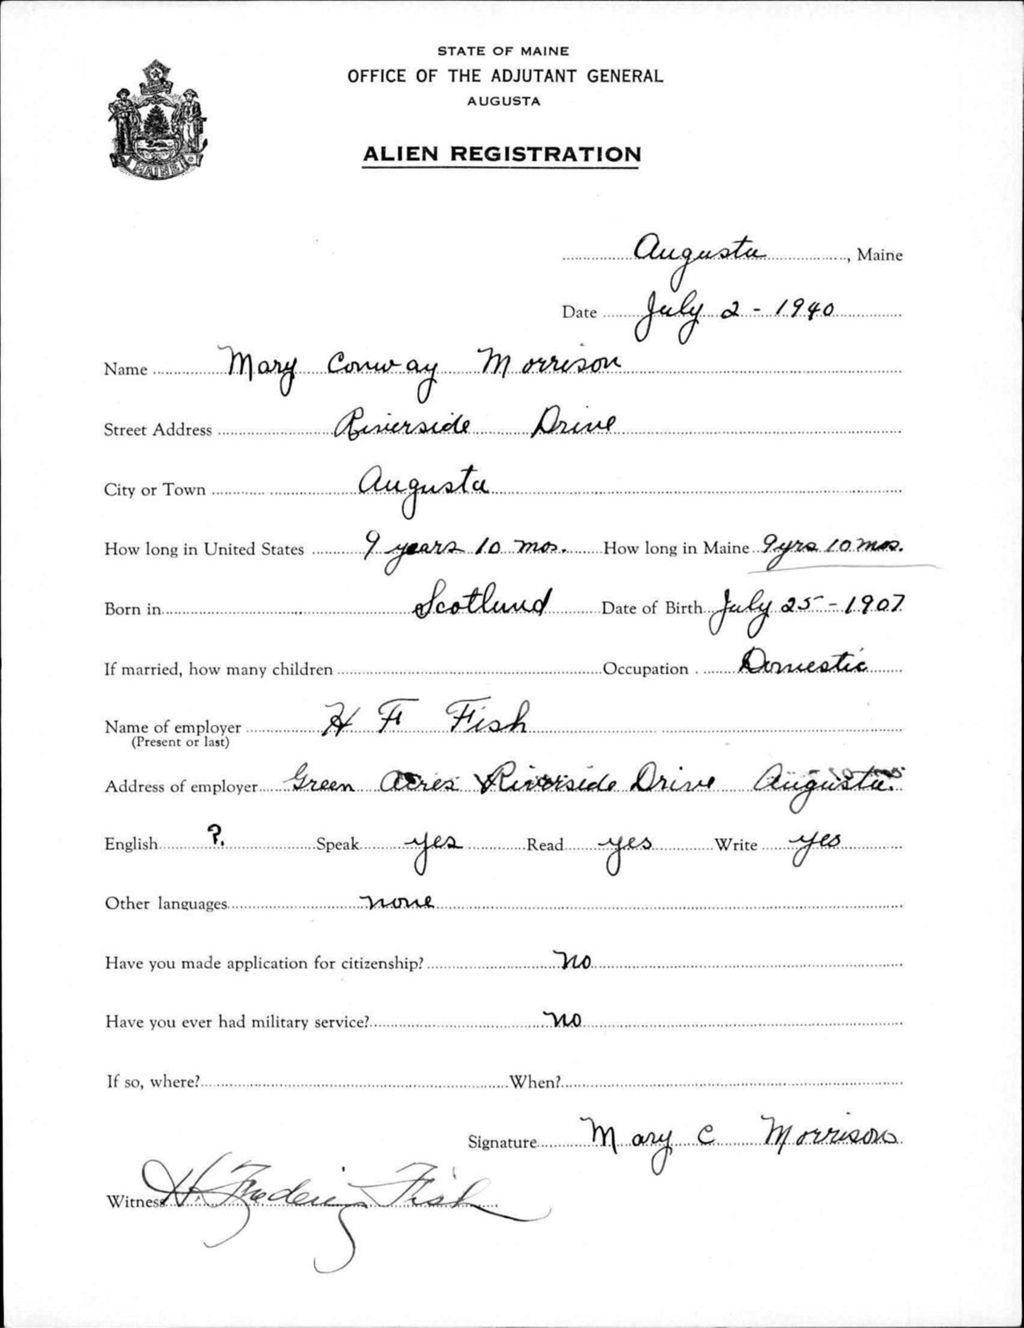 STATE OF MAINE
OFFICE OF THE ADJUTANT GENERAL
AUGUSTA
ALIEN REGISTRATION
MAINE
Augusta, Maine
Date July 2 - 1940
Name Mary Conway Morrison
Street Address Riverside Drive
City or Town Augusta
How long in United States 9 years 10 mos. How long in Maine 9 yrs 10 mos.
Born in Scotland Date of Birth July 25 - 1907
If married, how many children Occupation Domestic
Name of employer H F Fish
(Present or last)
Address of employer Green Acres Riverside Drive Augusta.
English ?. Speak yes Read yes Write yes
Other languages none
Have you made application for citizenship? no
Have you ever had military service? no
If so, where? When?
Signature Mary C Morrison
Witness H. Frederick Fish